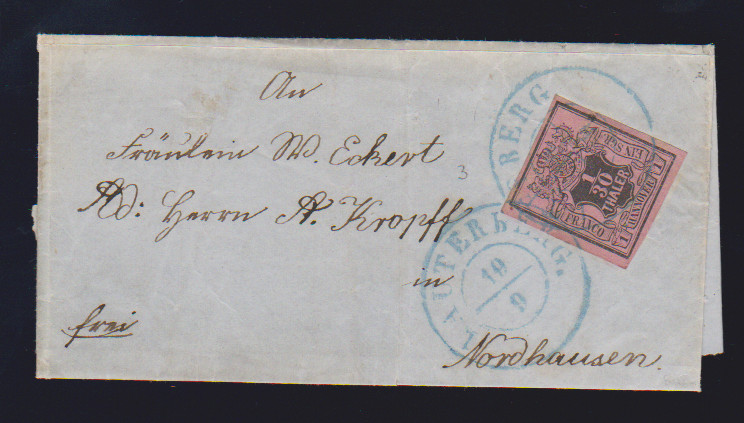 An
Fräulein W. Eckert
Ad: Herrn A. Kropff
in
Nordhausen.
frei
3
BERG
LAUTERBERG.
19
9
EIN SGR
1
1/30
THALER
HANNOVER
FRANCO
1